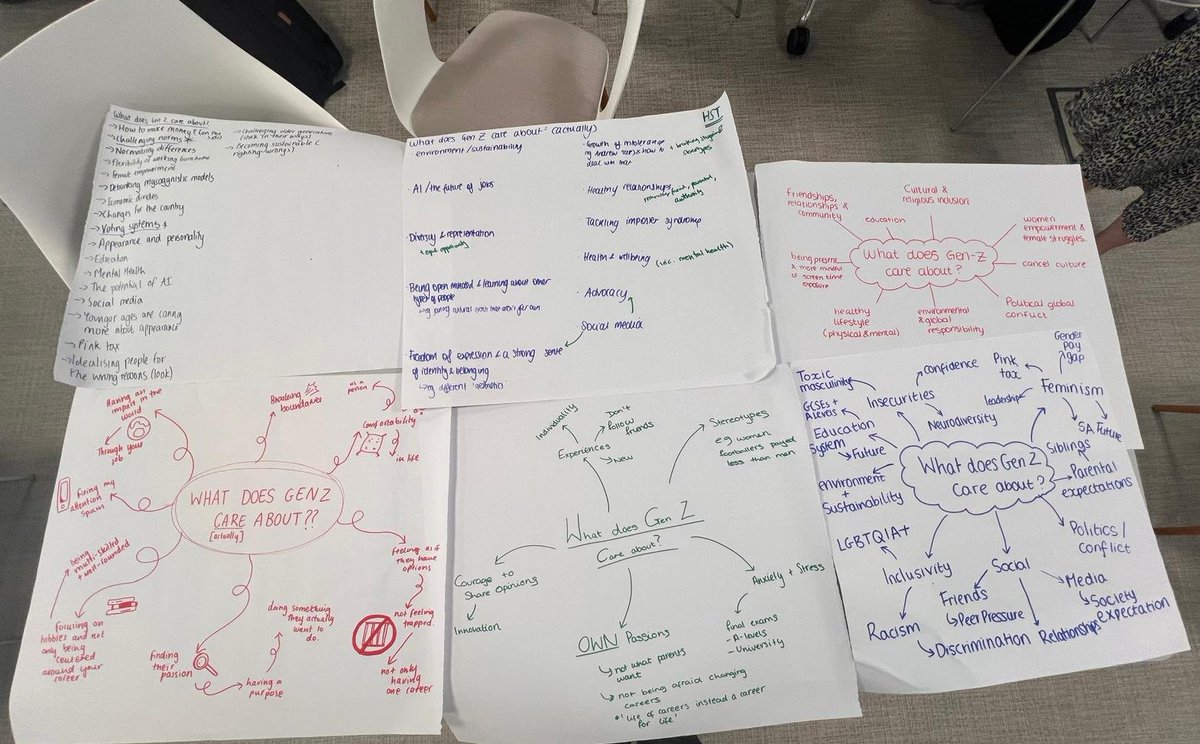 What does Gen Z care about?
→ How to make money?
→ Challenging norms *
→ Normalising differences
→ Flexibility of working from home
→ Female empowerment
→ Debunking mysoggnistic models
→ Economic divides
→ Changes for the country
→ Voting systems *
→ Appearance and personality
→ Education
→ Mental Health
→ The potential of AI
→ Social media
→ Younger ages are caring
more about appearance
→ Pink tax
→ Idealising people for
the wrong reasons (look)
→ Challenging older generations
(stuck in their ways)
→ Becoming sustainable (
righting-wrongs)
HST
What does Gen Z care about? (actually)
· environment/sustainability
· AI/the future of jobs
· Diversity & representation
· Being open minded & learning about other
types of people
· Freedom of expression & a strong sense
of identity & belonging
eg different 'aesthetics'
· Growth of intolerance
eg Andrew Tate & how to
deal with that
· Healthy relationships
Tackling imposter syndrome
· Health & wellbeing (inc. mental health)
· Advocacy
Social media
What does Gen-Z
care about?
friendships,
relationships &
community
education
Cultural &
religious inclusion
women
empowerment &
female struggles.
cancel culture
Political global
conflict
environmental
& global
responsibility
healthy
lifestyle
(physical & mental)
being present
& more mindful
of screen time
exposure
WHAT DOES GEN Z
CARE ABOUT??
[actually]
Having an
impact in the
world
Through your
job
Breaking
boundaries
as a
person
Comfortability
in life
fixing my
attention
span
being
multi-skilled
+ well-rounded
focusing on
hobbies and not
only being
centered
around your
career
finding
their
passion
having a
purpose
doing something
they actually
want to
do.
feeling as if
they have
options
not feeling
trapped.
not only
having
one career
What does Gen Z
Care about?
Individuality
Experiences
Don't
follow
friends
New
Stereotypes
eg women
footballers payed
less than men
Courage to
Share Opinions
Innovation
OWN Passions
not what parents
want
not being afraid changing
careers
'life of careers instead a career
for life'
Anxiety + Stress
final exams
- A-levels
- University
What does Gen Z
care about?
Toxic
masculinity
Insecurities
confidence
Neurodiversity
Pink
tax
Gender
pay
gap
leadership
Feminism
SA
Future
GCSEs +
A levels
Education
System
Future
environment
+
Sustainability
LGBTQIA+
Inclusivity
Racism
Discrimination
Social
Friends
Peer Pressure
Relationships
Media
Society
expectation
Politics /
conflict
Siblings
Parental
expectations